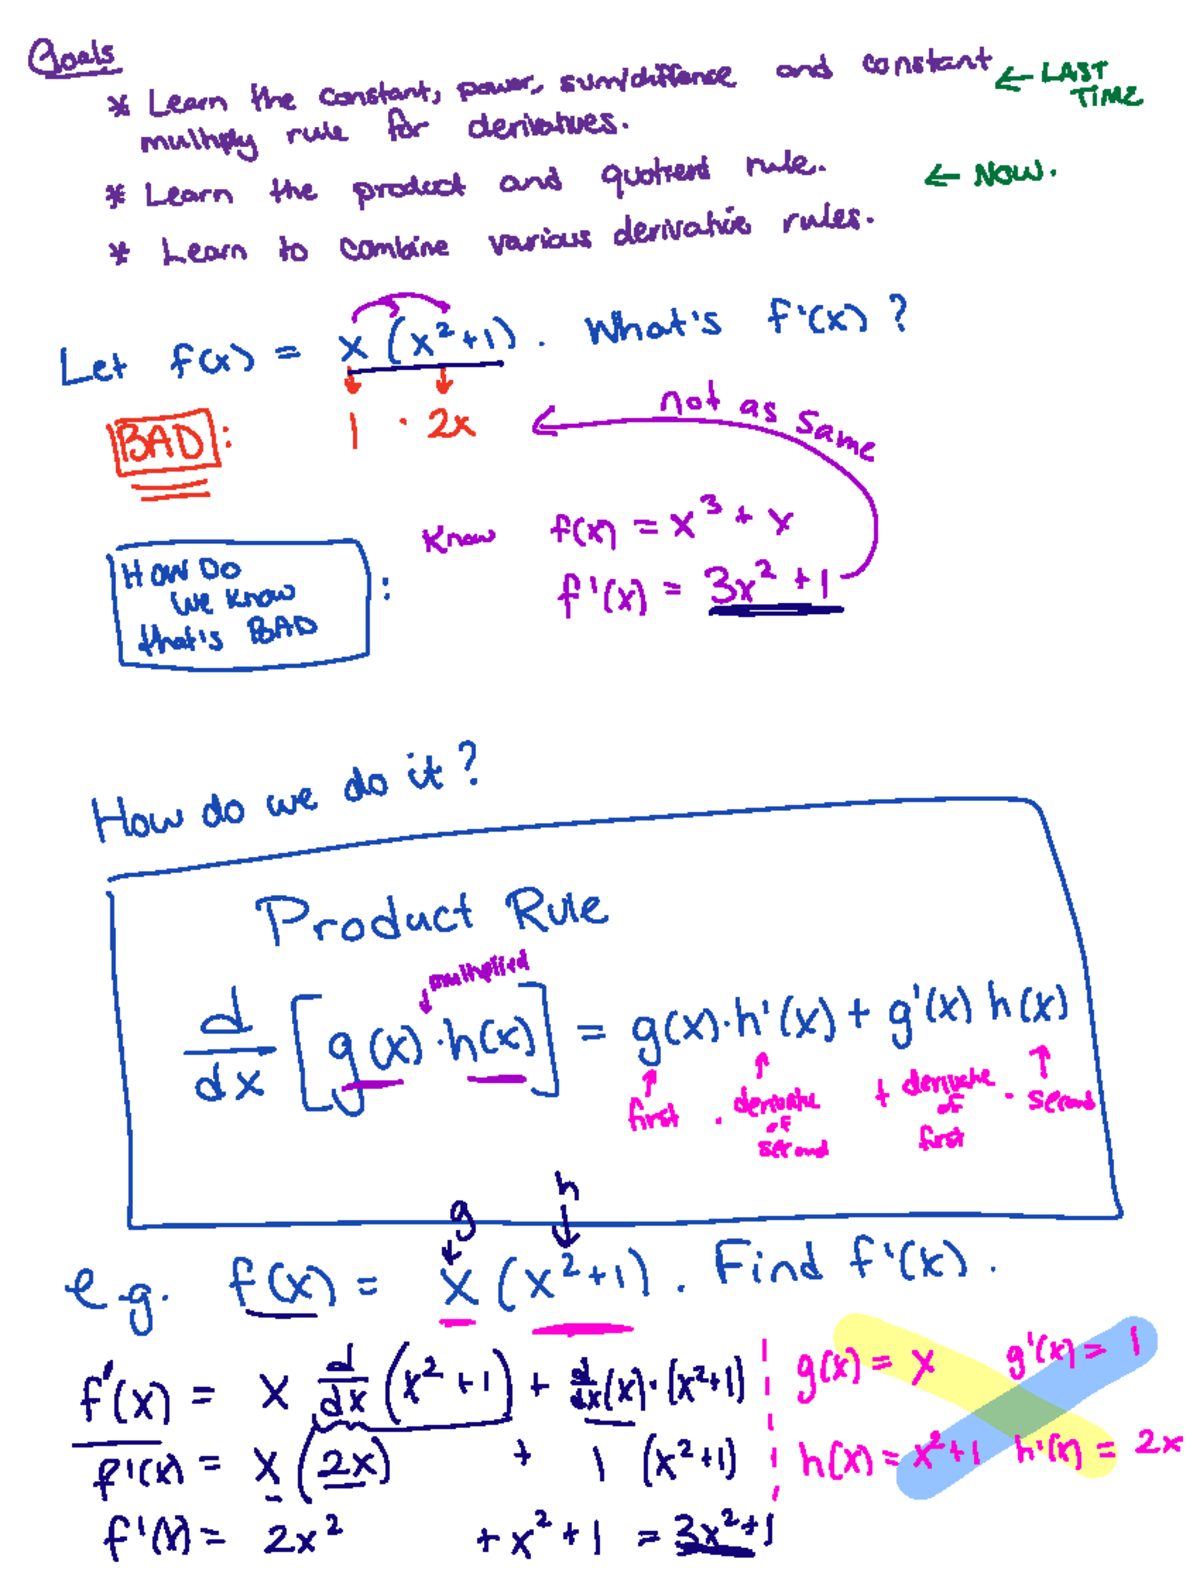 Goals
* Learn the constant, power, sum/difference and constant ← LAST TIME
multiply rule for derivatives.
* Learn the product and quotient rule. ← NOW.
* Learn to combine various derivative rules.
Let f(x) = x (x²+1). What's f'(x)?
BAD: 1 · 2x ← not as same
HOW DO
we know
that's BAD :
Know f(x) = x³ + x
f'(x) = 3x² + 1
How do we do it?
Product Rule
multiplied
d/dx [g(x) · h(x)] = g(x)·h'(x) + g'(x) h(x)
first · derivative of second + derivative of first · second
g h
e.g. f(x) = x (x²+1). Find f'(x).
f'(x) = x d/dx (x²+1) + d/dx(x)·(x²+1)
g(x) = x g'(x) = 1
f'(x) = x (2x) + 1 (x²+1)
h(x) = x²+1 h'(x) = 2x
f'(x) = 2x² + x² + 1 = 3x²+1